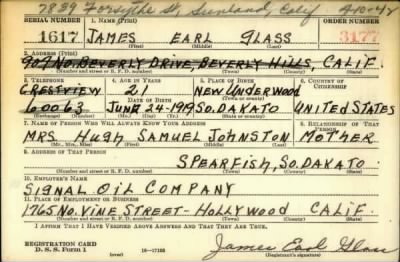 7839 Forsythe St, Sunland, Calif 4-10-4
SERIAL NUMBER 1. NAME (Print) ORDER NUMBER
1617 JAMES EARL GLASS 3177
(First) (Middle) (Last)
2. ADDRESS (Print)
909 NO. BEVERLY DRIVE, BEVERLY HILLS, CALIF.
(Number and street or R. F. D. number) (Town) (County) (State)
3. TELEPHONE 4. AGE IN YEARS 5. PLACE OF BIRTH 6. COUNTRY OF CITIZENSHIP
CRESTVIEW 21 NEW UNDERWOOD
DATE OF BIRTH (Town or county)
60063 JUNE 24-1919 SO. DAKATO UNITED STATES
(Exchange) (Number) (Mo.) (Day) (Yr.) (State or country)
7. NAME OF PERSON WHO WILL ALWAYS KNOW YOUR ADDRESS 8. RELATIONSHIP OF THAT PERSON
MRS. HUGH SAMUEL JOHNSTON MOTHER
(Mr., Mrs., Miss) (First) (Middle) (Last)
9. ADDRESS OF THAT PERSON
SPEARFISH, SO. DAKATO.
(Number and street or R. F. D. number) (Town) (County) (State)
10. EMPLOYER'S NAME
SIGNAL OIL COMPANY
11. PLACE OF EMPLOYMENT OR BUSINESS
1765 NO. VINE STREET - HOLLYWOOD CALIF.
(Number and street or R. F. D. number) (Town) (County) (State)
I AFFIRM THAT I HAVE VERIFIED ABOVE ANSWERS AND THAT THEY ARE TRUE.
REGISTRATION CARD
D. S. S. Form 1 (over) 16-17105 James Earl Glass